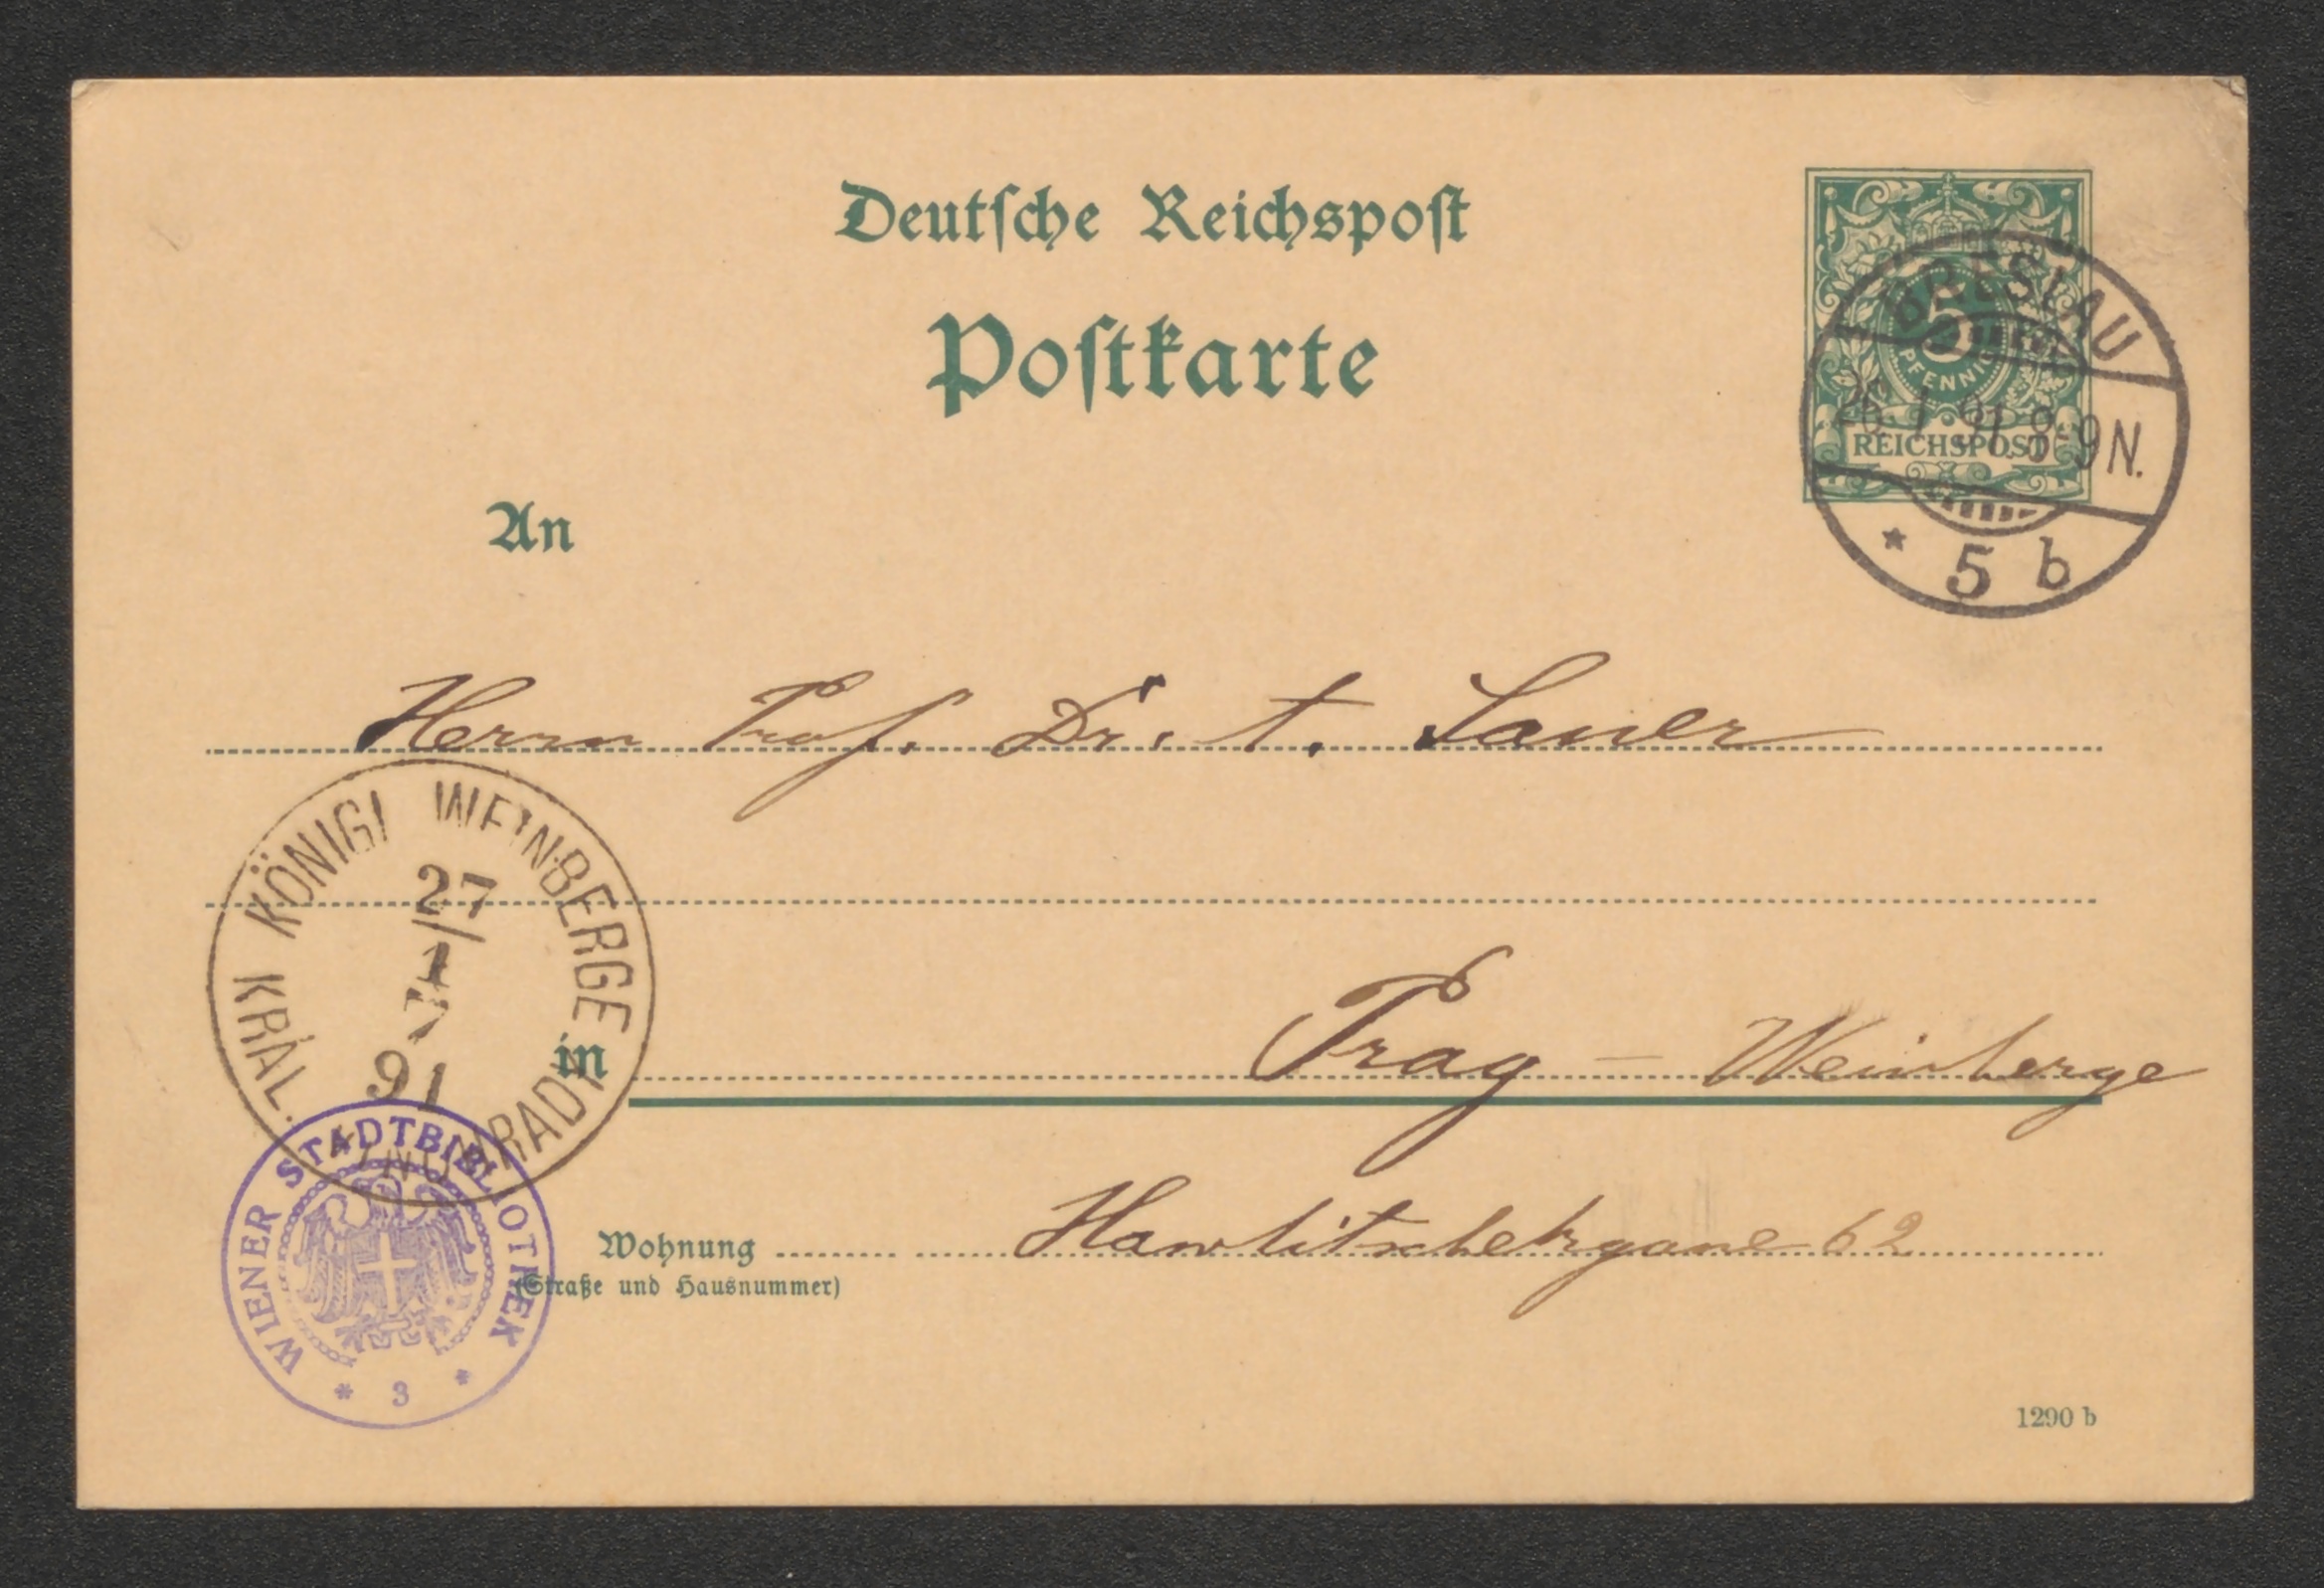 Deutsche Reichspost
Postkarte
5
PFENNIG
REICHSPOST
BRESLAU
26.1.91.8-9N.
* 5 b
An
Herrn Prof. Dr. A. Sauer
KÖNIGL WEINBERGE
KRÁL.
27/
1
91
in Prag - Weinberge
WIENER STADTBIBLIOTHEK
* 3 *
Wohnung Hawlitschekgasse 62
(Straße und Hausnummer)
1290 b